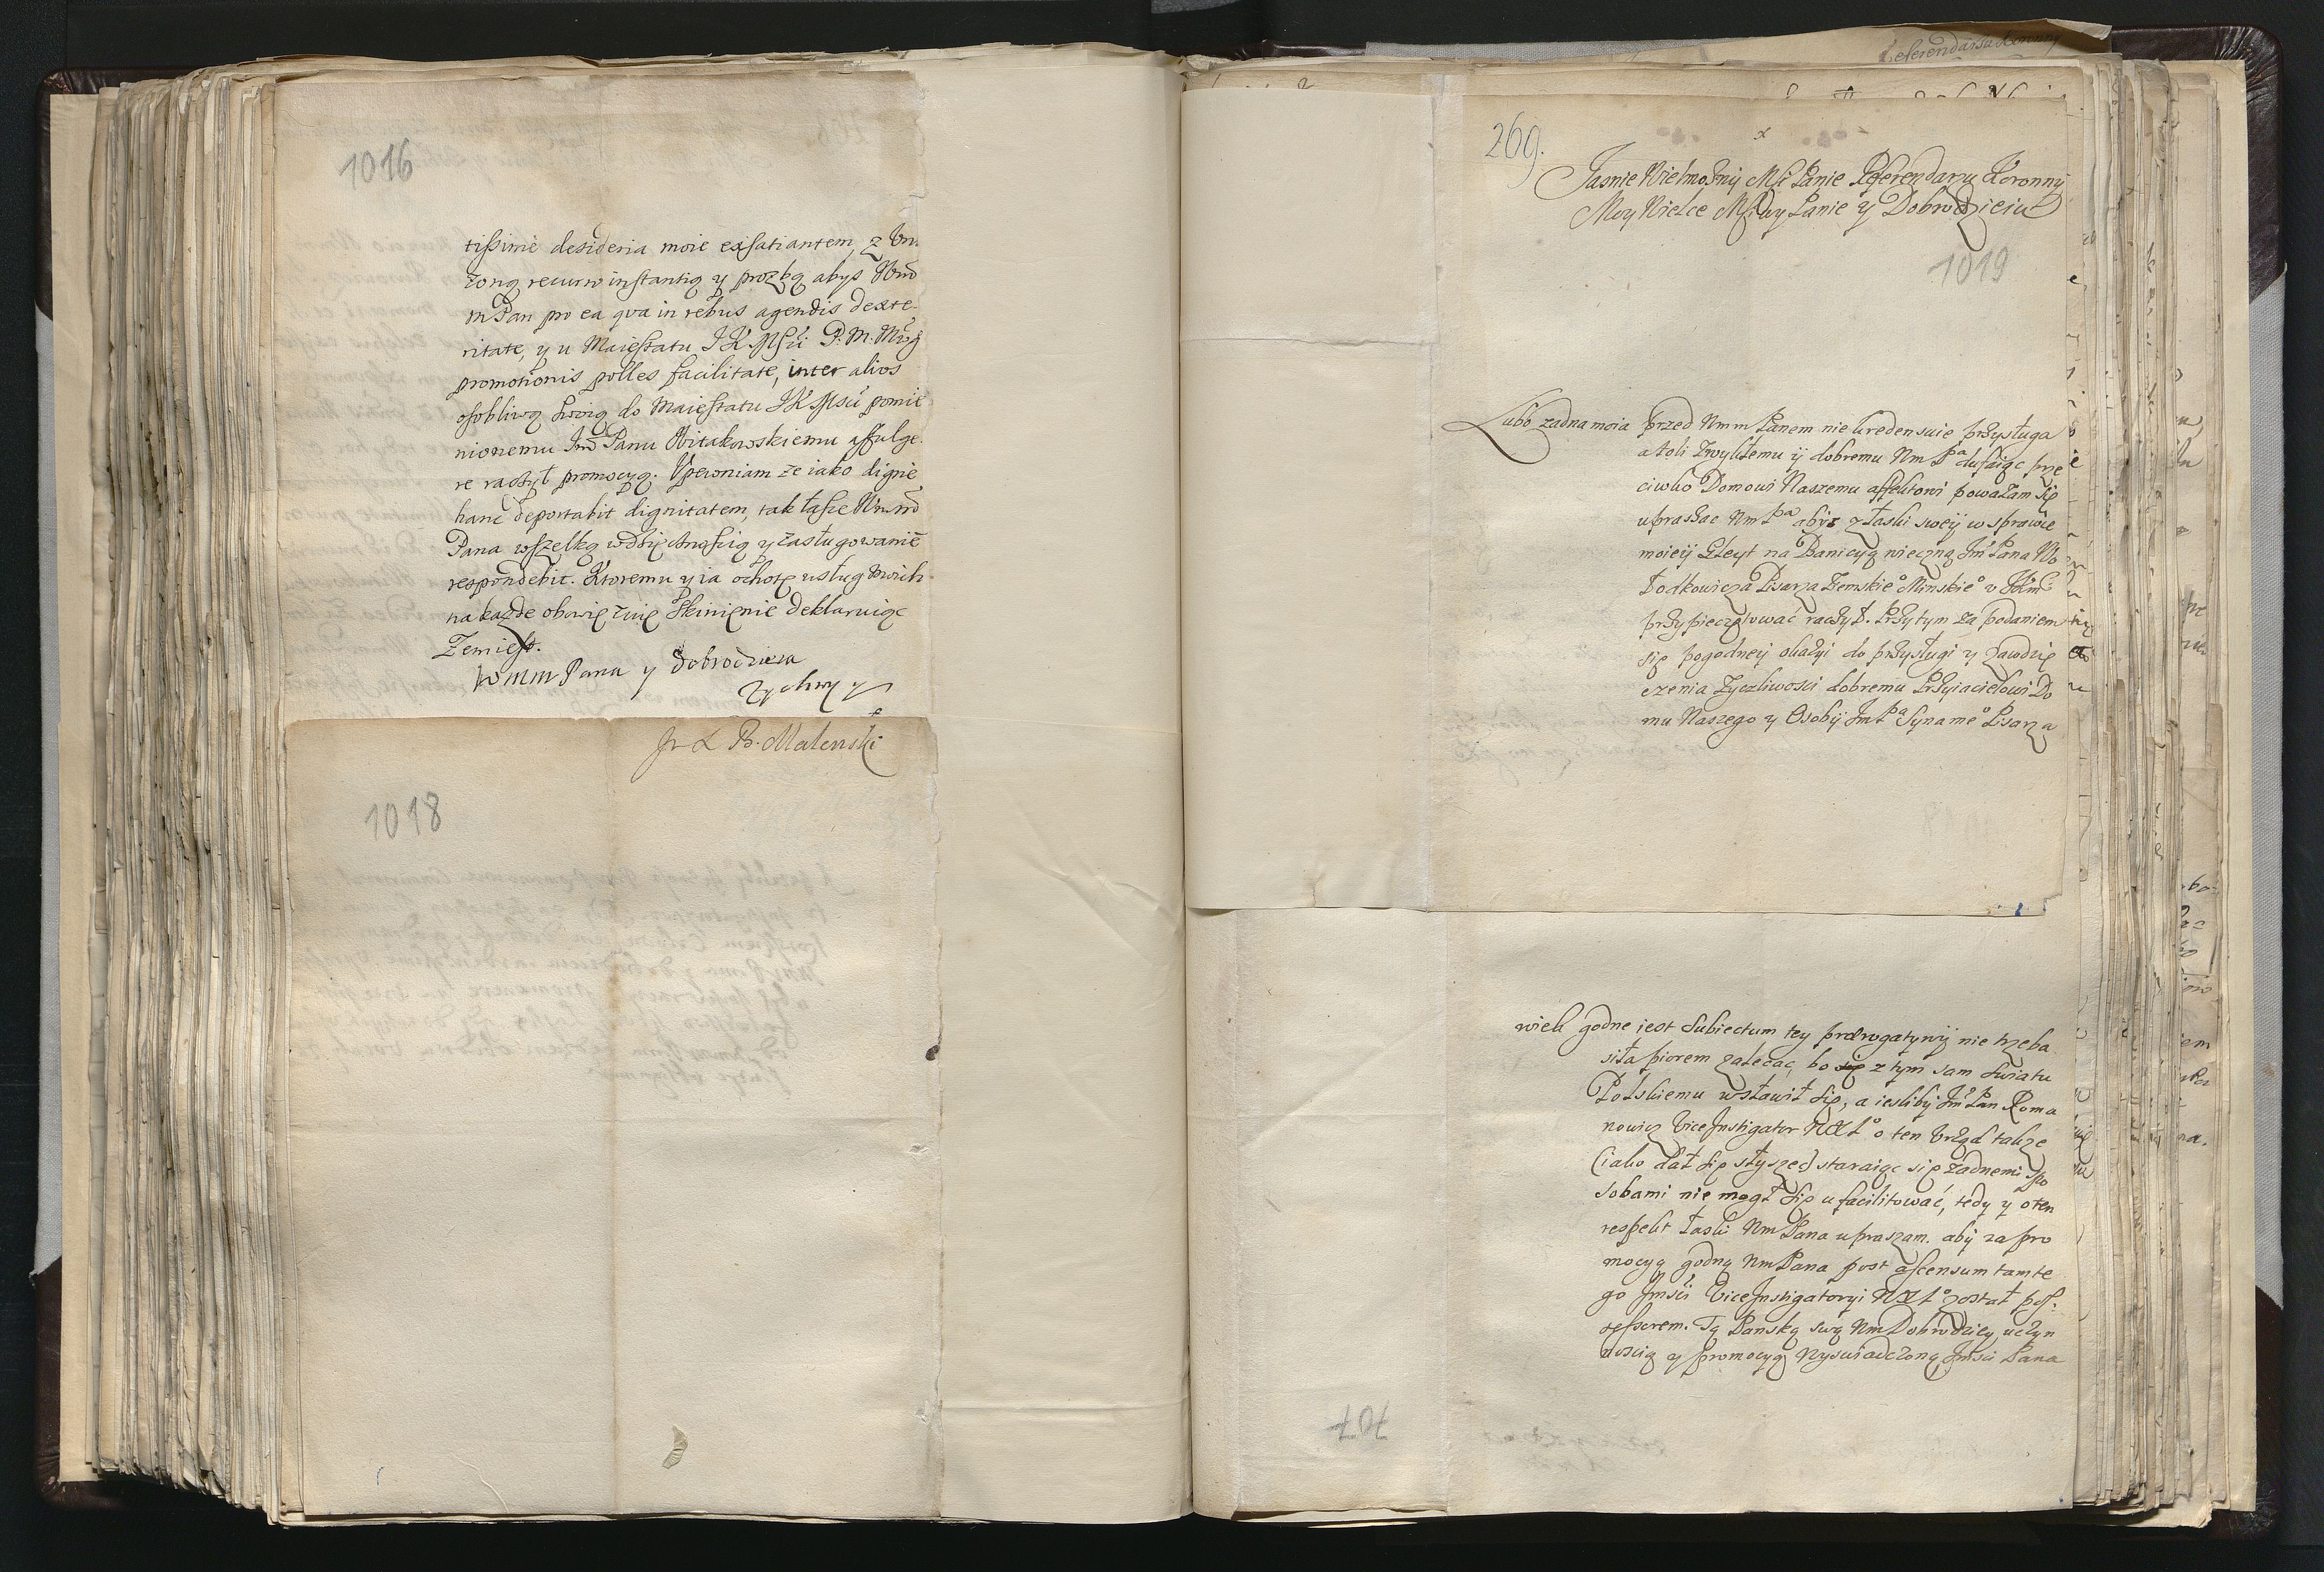 1016
tissime desideria moie exsatiantem, z Uni
żoną recurro instantią y prozbą abyś Wm
m Pan pro ea qva in rebus agendis dexte
ritate, y u Maiestatu JKMsći P. M. Mwg
promotionis polles facilitate, inter alios
osobliwą swoią do Maiestatu JKMsći pomie
nionemu Jm Panu Witakowskiemu affulge
re raczył promocyą. Upewniam że iako digne
hanc deportabit dignitatem, tak łasce Wm m
Pana wszelką wdzięcznością y zasługowanie
respondebit. Ktoremu y ia ochotę usług swoich
na kazde obowięzuię skinienie deklaruiąc
Żemiest.
Wmm Pana y Dobrodzieia
Zycliwy y
Jr L B. Malenski
1018
Referendarzu Koronny
269.
Jasnie Wielmożny Msći Panie Referendarzu Koronny
Moy Wielce Msciwy Panie y Dobrodzieiu
1019
Lubo zadna moia przed Wmm Panem nie kredensuie przysługa
atoli zwykłemu y dobremu Wm Pa dufaiąc prze
ciwko Domowi Naszemu affektowi poważam się
upraszac Wm Pa abyś z łaski swey w sprawie
moiey Gleyt na Banicyą wieczną Jm Pana Wo
łodkowicza Pisarza Zemskieo Minskieo v JKM
przypieczętować raczył. Przytym za podaniem
się pogodney okazyi do przysługi y zawdzię
czenia życzliwosci dobremu Przyiacielowi Do
mu Naszego y Osoby Jm Pa Syna meo Pisarza
wielk godne iest subiectum tey prærogatywy nie trzeba
siła piorem zalecac, bo się z tym sam swiatu
Polskiemu wsławił się, a iesliby Jm Pan Roma
nowicz ViceInstigator WXLo o ten Urząd takze
(iako dał się słyszec) staraiąc się żadnemi spo
sobami nie mogł się ufacilitować, tedy y o ten
respekt łaski Wm Pana upraszam. aby za pro
mocyą godną Wm Pana post ascensum tamte
go Jmsci ViceInstigatoryi WXLo został pos-
sessorem. Tą Panską swą Wm Dobrodziey uczyn
noscią y promocyą wyswiadczoną Jmsci Pana
707